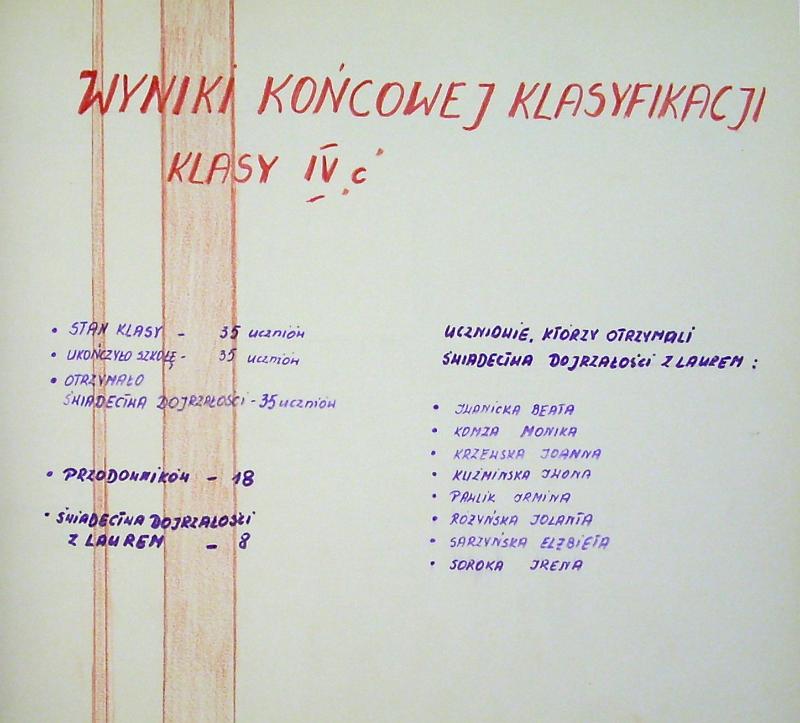 WYNIKI KOŃCOWEJ KLASYFIKACJI
KLASY IV "c"
• STAN KLASY - 35 uczniów
• UKOŃCZYŁO SZKOŁĘ - 35 uczniów
• OTRZYMAŁO
ŚWIADECTWA DOJRZAŁOŚCI - 35 uczniów
• PRZODOWNIKÓW - 18
• ŚWIADECTWA DOJRZAŁOŚCI
Z LAUREM - 8
UCZNIOWIE, KTÓRZY OTRZYMALI
ŚWIADECTWA DOJRZAŁOŚCI Z LAUREM :
• IWANICKA BEATA
• KOMZA MONIKA
• KRZEWSKA JOANNA
• KUŹMIŃSKA IWONA
• PAWLIK IRMINA
• ROŻYŃSKA JOLANTA
• SARZYŃSKA ELŻBIETA
• SOROKA IRENA